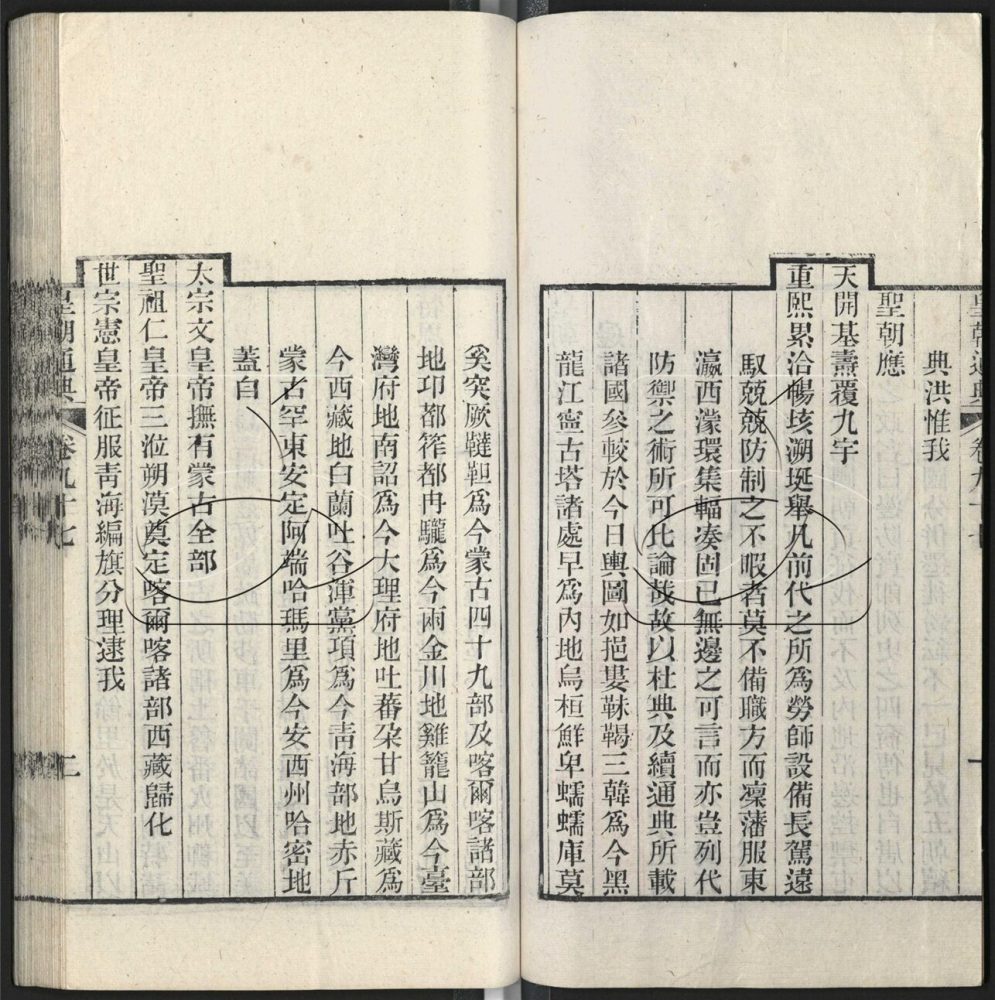 皇朝通典 卷九十七
典洪惟我
聖朝應
天開基燾覆九宇
重熙累洽暢垓溯埏舉凡前代之所爲勞師設備長駕遠
馭兢兢防制之不暇者莫不備職方而凜藩服東
瀛西濛環集輻凑固已無邊之可言而亦豈列代
防禦之術所可比論哉故以杜典及續通典所載
諸國參較於今日輿圖如挹婁靺鞨三韓爲今黑
龍江寧古塔諸處早爲內地烏桓鮮卑蠕蠕庫莫
奚突厥韃靼爲今蒙古四十九部及喀爾喀諸部
地卭都筰都冉駹爲今兩金川地雞籠山爲今臺
灣府地南詔爲今大理府地吐蕃朶甘烏斯藏爲
今西藏地白蘭吐谷渾黨項爲今靑海部地赤斤
蒙古罕東安定阿端哈瑪里爲今安西州哈密地
蓋自
太宗文皇帝撫有蒙古全部
聖祖仁皇帝三涖朔漠奠定喀爾喀諸部西藏歸化
世宗憲皇帝征服靑海編旗分理逮我
皇朝通典 卷九十七 二